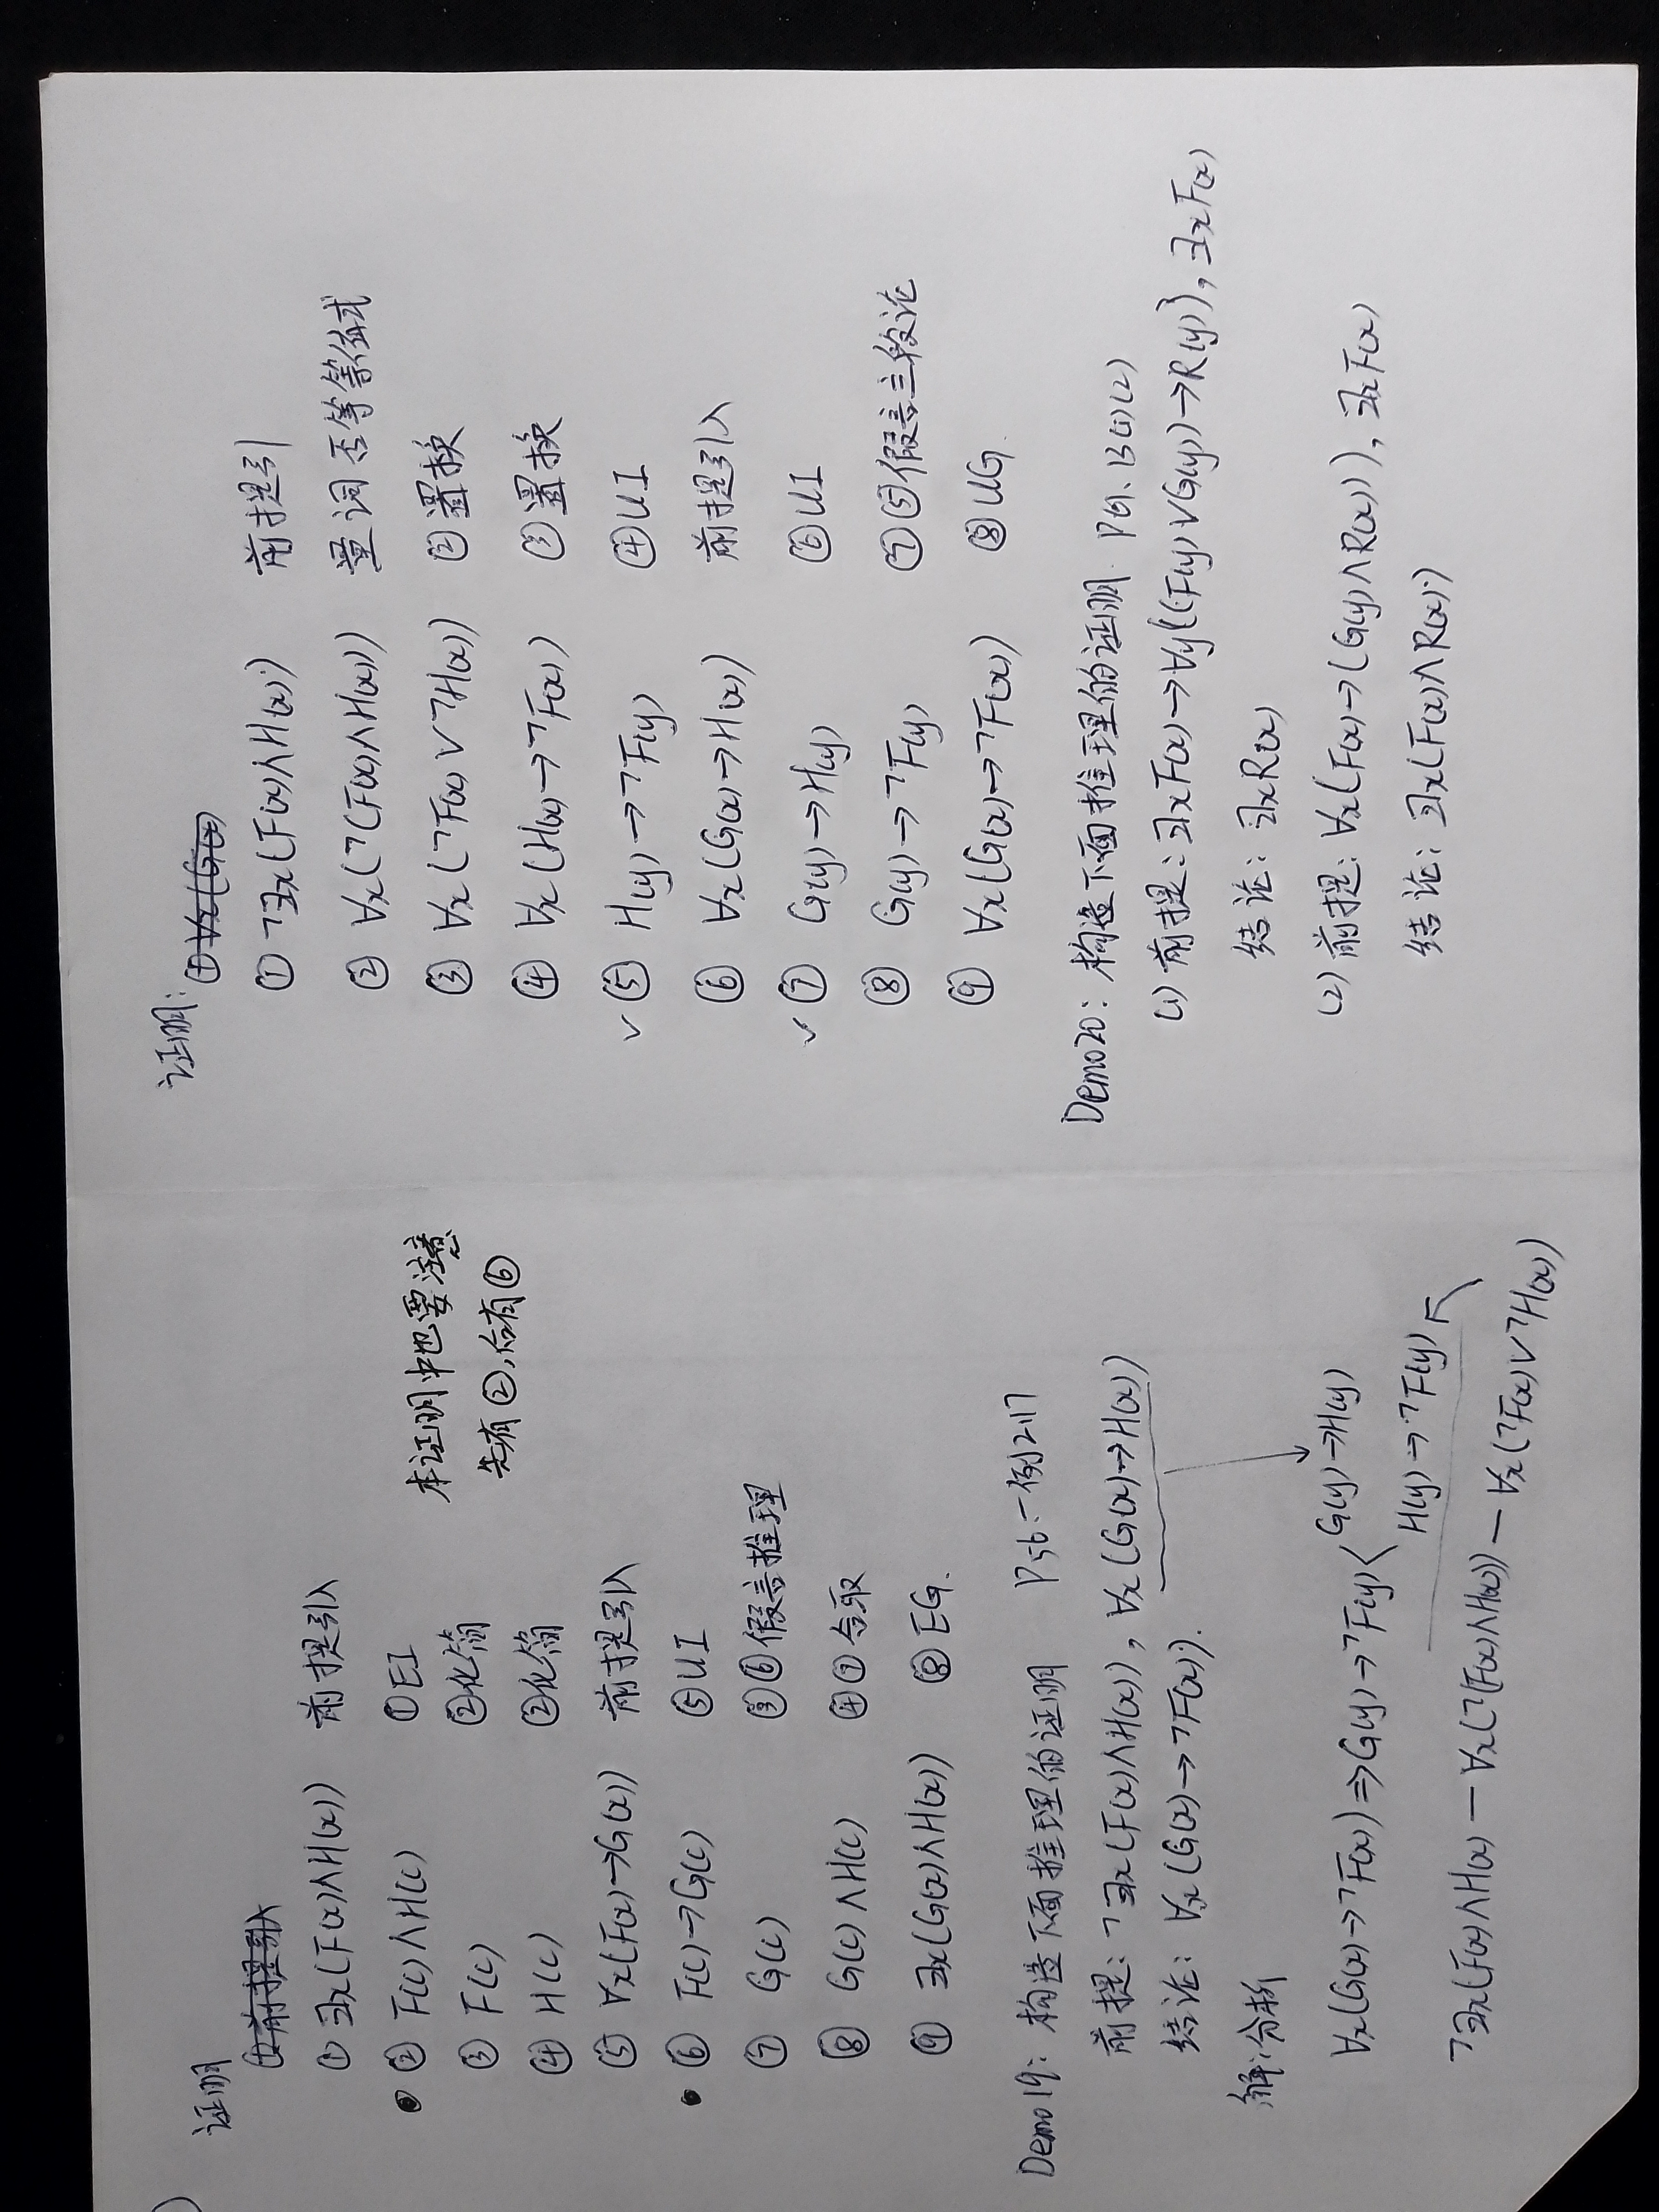 证明
① 前提引入
① ∃x(F(x)∧H(x)) 前提引入
② F(c)∧H(c) ①EI
③ F(c) ②化简
④ H(c) ②化简
本证明中也要注意
先有②,后有⑥
⑤ ∀x(F(x)→G(x)) 前提引入
⑥ F(c)→G(c) ⑤UI
⑦ G(c) ③⑥假言推理
⑧ G(c)∧H(c) ④⑦合取
⑨ ∃x(G(x)∧H(x)) ⑧EG.
Demo19: 构造下面推理的证明 P56.-例2.17
前提: ¬∃x(F(x)∧H(x)), ∀x(G(x)→H(x))
结论: ∀x(G(x)→¬F(x)).
解:分析
∀x(G(x)→¬F(x))⇒G(y)→¬F(y)<
G(y)→H(y)
H(y)→¬F(y)
¬∃x(F(x)∧H(x) — ∀x(¬(F(x)∧H(x))) — ∀x(¬F(x)∨¬H(x))
证明:
① ∀x(G(x)
① ¬∃x(F(x)∧H(x)) 前提引
② ∀x(¬(F(x)∧H(x))) 量词否等等值式
③ ∀x(¬F(x)∨¬H(x)) ②置换
④ ∀x(H(x)→¬F(x)) ③置换
✓⑤ H(y)→¬F(y) ④UI
⑥ ∀x(G(x)→H(x)) 前提引入
✓⑦ G(y)→H(y) ⑥UI
⑧ G(y)→¬F(y) ⑦⑤假言三段论
⑨ ∀x(G(x)→¬F(x)) ⑧UG.
Demo20: 构造下面推理的证明. P61. 13(1)(2)
(1) 前提: ∃xF(x)→∀y((F(y)∨G(y))→R(y)), ∃xF(x)
结论: ∃xR(x)
(2) 前提: ∀x(F(x)→(G(y)∧R(x))), ∃xF(x)
结论: ∃x(F(x)∧R(x))